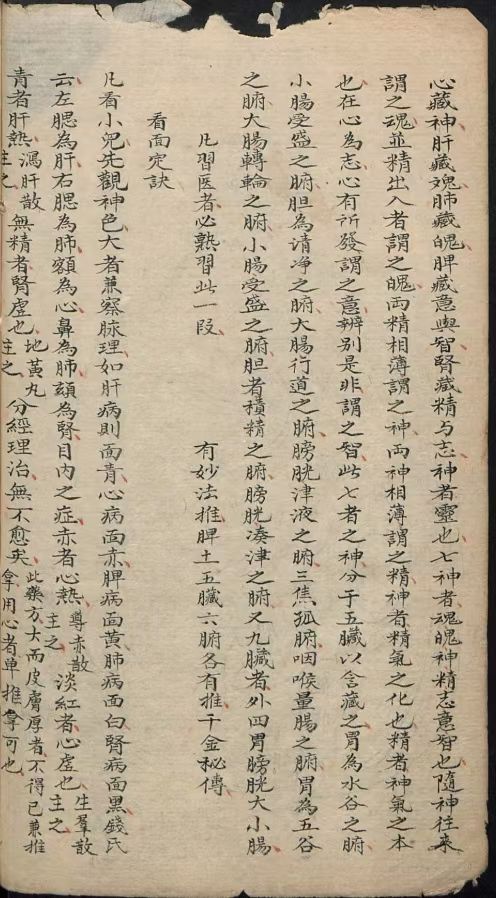 心藏神肝藏魂肺藏魄脾藏意與智腎藏精与志神者靈也七神者魂魄神精志意智也隨神往来
謂之魂並精出入者謂之魄両精相薄謂之神両神相薄謂之精神者精氣之化也精者神氣之本
也在心為志心有所發謂之意辨别是非謂之智此七者之神分于五臓以含藏之胃為水谷之腑
小腸受盛之腑胆為清净之腑大腸行道之腑膀胱津液之腑三焦孤腑咽喉量腸之腑胃為五谷
之腑大腸轉輪之腑小腸受盛之腑胆者積精之腑膀胱凑津之腑又九臓者外四胃膀胱大小腸
凡習医者必熟習此一段　有妙法推脾土五臓六腑各有推千金秘傳
看面定訣
凡看小兒先觀神色大者兼察脉理如肝病則面青心病面赤脾病面黄肺病面白腎病面黑錢氏
云左腮為肝右腮為肺額為心鼻為肺頦為腎目内之症赤者心熱導赤散主之淡紅者心虚也生羣散主之
青者肝熱瀉肝散主之無精者腎虚也地黄丸主之分經理治無不愈矣此藥方大而皮膚厚者不得已兼推拿用心者单推拿可也